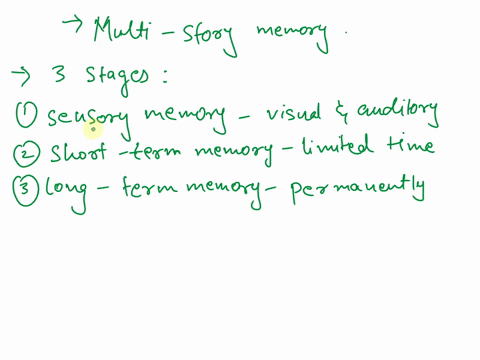 → Multi - story memory.
→ 3 stages:
① sensory memory - visual & auditory
② short-term memory - limited time
③ long-term memory - permanently